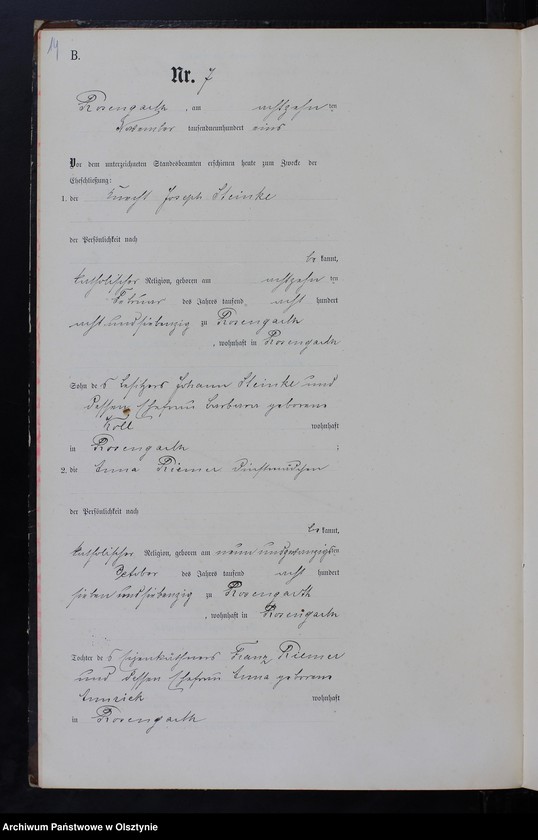 14
B.
Nr. 7
Rosengarth, am achtzehn ten
November tausendneunhundert eins
Vor dem unterzeichneten Standesbeamten erschienen heute zum Zwecke der
Eheschließung:
1. der Knecht Joseph Steinke
der Persönlichkeit nach
be kannt,
katholischer Religion, geboren am achtzehn ten
Februar des Jahres tausend acht hundert
acht und siebenzig zu Rosengarth
, wohnhaft in Rosengarth
Sohn des Besitzers Johann Steinke und
dessen Ehefrau Barbara geborene
wohnhaft
in Rosengarth ;
2. die Anna Riemer Dienstmädchen
der Persönlichkeit nach
be kannt,
katholischer Religion, geboren am neun und zwanzigsten
October des Jahres tausend acht hundert
sieben und siebenzig zu Rosengarth
, wohnhaft in Rosengarth
Tochter des Eigenkäthners Franz Riemer
und dessen Ehefrau Anna geborene
wohnhaft
in Rosengarth
Archiwum Państwowe w Olsztynie